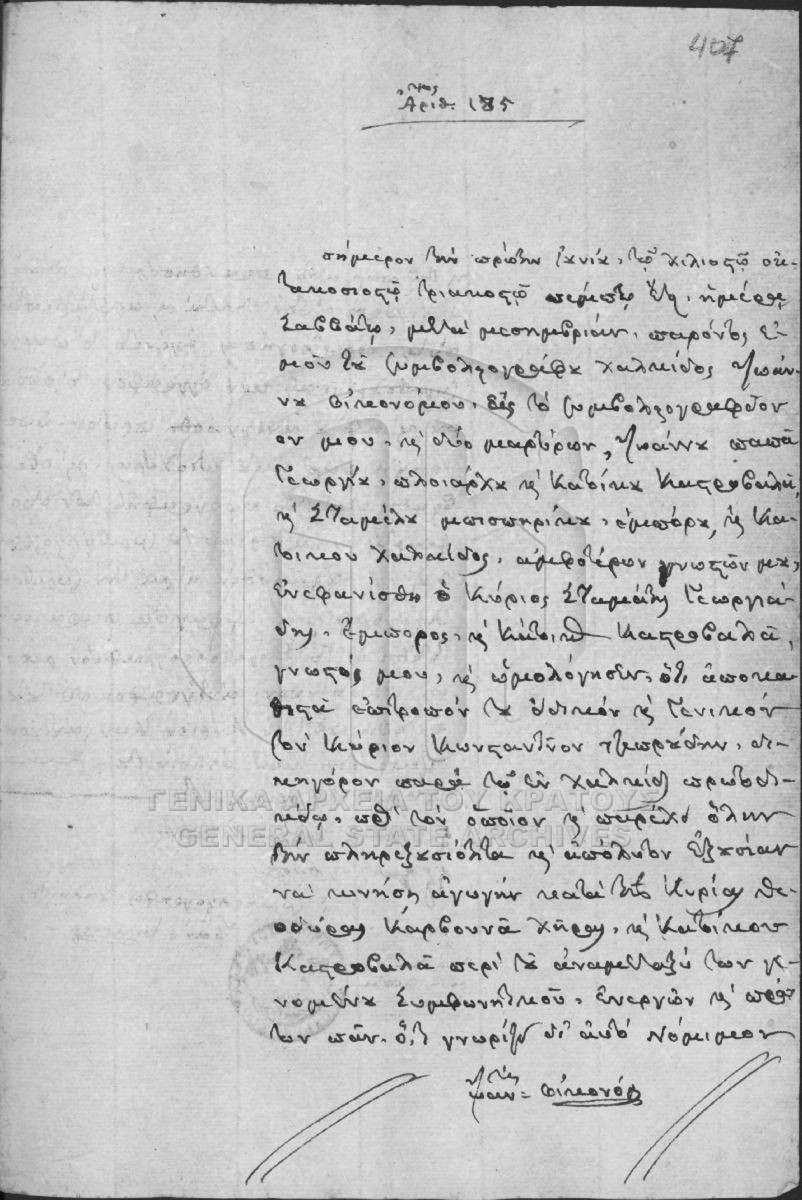 407
Ἀριθ.τος 185
σήμερον τὴν πρώτην Ἰουνίου τοῦ χιλιοστοῦ ὀκ-
τακοσιοστοῦ τριακοστοῦ πέμπτου ἔτους, ἡμέρᾳ
Σαββάτῳ, μετὰ μεσημβρίαν, παρόντος ἐ-
μοῦ τοῦ συμβολαιογράφου Χαλκίδος Ἰωάν-
νου Οἰκονόμου, εἰς τὸ συμβολαιογραφεῖον
μου, καὶ δύο μαρτύρων, Ἰωάννου παπᾶ
Γεωργίου, πλοιάρχου καὶ κατοίκου Καστροβαλᾶ,
καὶ Σταμέλου μπισπηρίκου, ἐμπόρου, καὶ κα-
τοίκου Χαλκίδος, ἀμφοτέρων γνωστῶν μου,
ἐνεφανίσθη ὁ Κύριος Σταμάτης Γεωργιά-
δης, ἔμπορος, καὶ κάτοικος Καστροβαλᾶ,
γνωστός μου, καὶ ὡμολόγησεν, ὅτι ἀποκα-
θιστᾶ ἐπίτροπόν του εἰδικὸν καὶ γενικὸν
τὸν Κύριον Κωνσταντῖνον δι-
κηγόρον παρὰ τῷ ἐν Χαλκίδι πρωτοδι-
κείῳ, πρὸς τὸν ὁποῖον καὶ παρέχει ὅλην
τὴν πληρεξουσιότητα καὶ ἀπόλυτον ἐξουσίαν
νὰ κινήσῃ ἀγωγὴν κατὰ τῆς Κυρίας Θε-
οδώρας Καρβουνᾶ χήρας, καὶ κατοίκου
Καστροβαλᾶ περὶ τοῦ ἀναμεταξύ των γε-
νομένου συμφωνητικοῦ, ἐνεργῶν καὶ πράτ-
των πᾶν, ὅ,τι γνωρίζει δι' αὐτὸ νόμιμον
Ἰωάν= Οἰκονόμ
ΓΕΝΙΚΑ ΑΡΧΕΙΑ ΤΟΥ ΚΡΑΤΟΥΣ
GENERAL STATE ARCHIVES